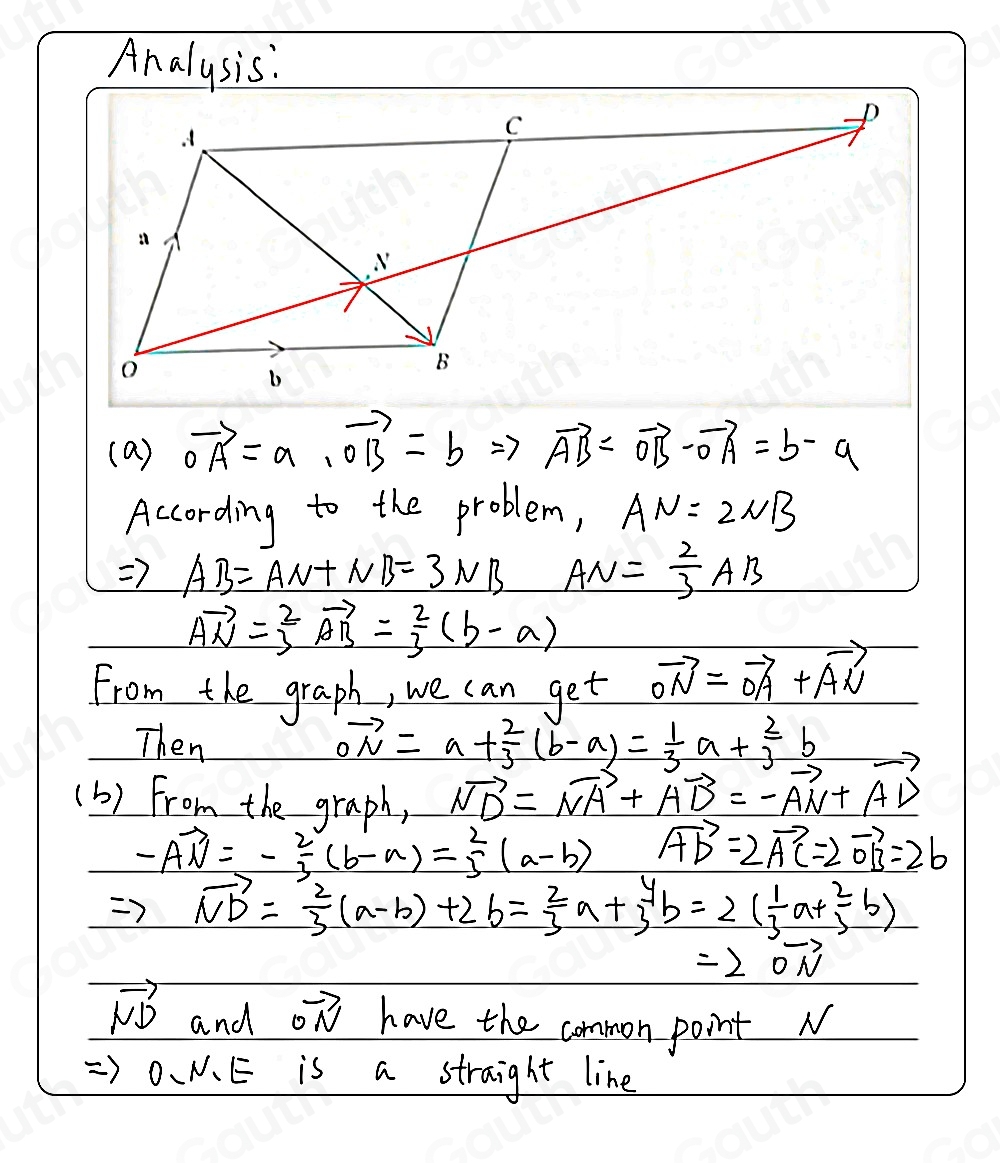 Analysis:
A C D
a N
O b B
(a) →OA = a、→OB = b => →AB = →OB - →OA = b - a
According to the problem, AN = 2NB
=> AB = AN + NB = 3NB AN = 2/3 AB
→AN = 2/3 →AB = 2/3 (b - a)
From the graph, we can get →ON = →OA + →AN
Then →ON = a + 2/3 (b - a) = 1/3 a + 2/3 b
(b) From the graph, →ND = →NA + →AD = -→AN + →AD
-→AN = - 2/3 (b - a) = 2/3 (a - b) →AD = 2→AC = 2→OB = 2b
=> →ND = 2/3 (a - b) + 2b = 2/3 a + 4/3 b = 2 (1/3 a + 2/3 b)
= 2 →ON
→ND and →ON have the common point N
=> O、N、E is a straight line